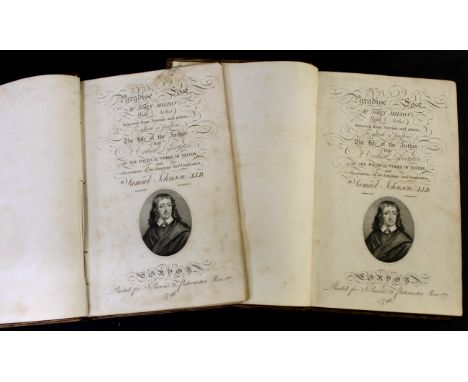 Paradise Lost,
By JOHN MILTON;
With Notes
Selected from Newton and others,
To which is prefixed
The Life of the Author
With
A Critical Dissertation
ON THE POETICAL WORKS OF MILTON,
and
Observations on his Language and Versification,
By Samuel Johnson, L.L.D.
LONDON
Printed for J. Parsons, Paternoster Row
1796
Paradise Lost,
By JOHN MILTON;
With Notes
Selected from Newton and others,
To which is prefixed
The Life of the Author
With
A Critical Dissertation
ON THE POETICAL WORKS OF MILTON,
and
Observations on his Language and Versification,
By Samuel Johnson, L.L.D.
LONDON
Printed for J. Parsons, Paternoster Row
1796